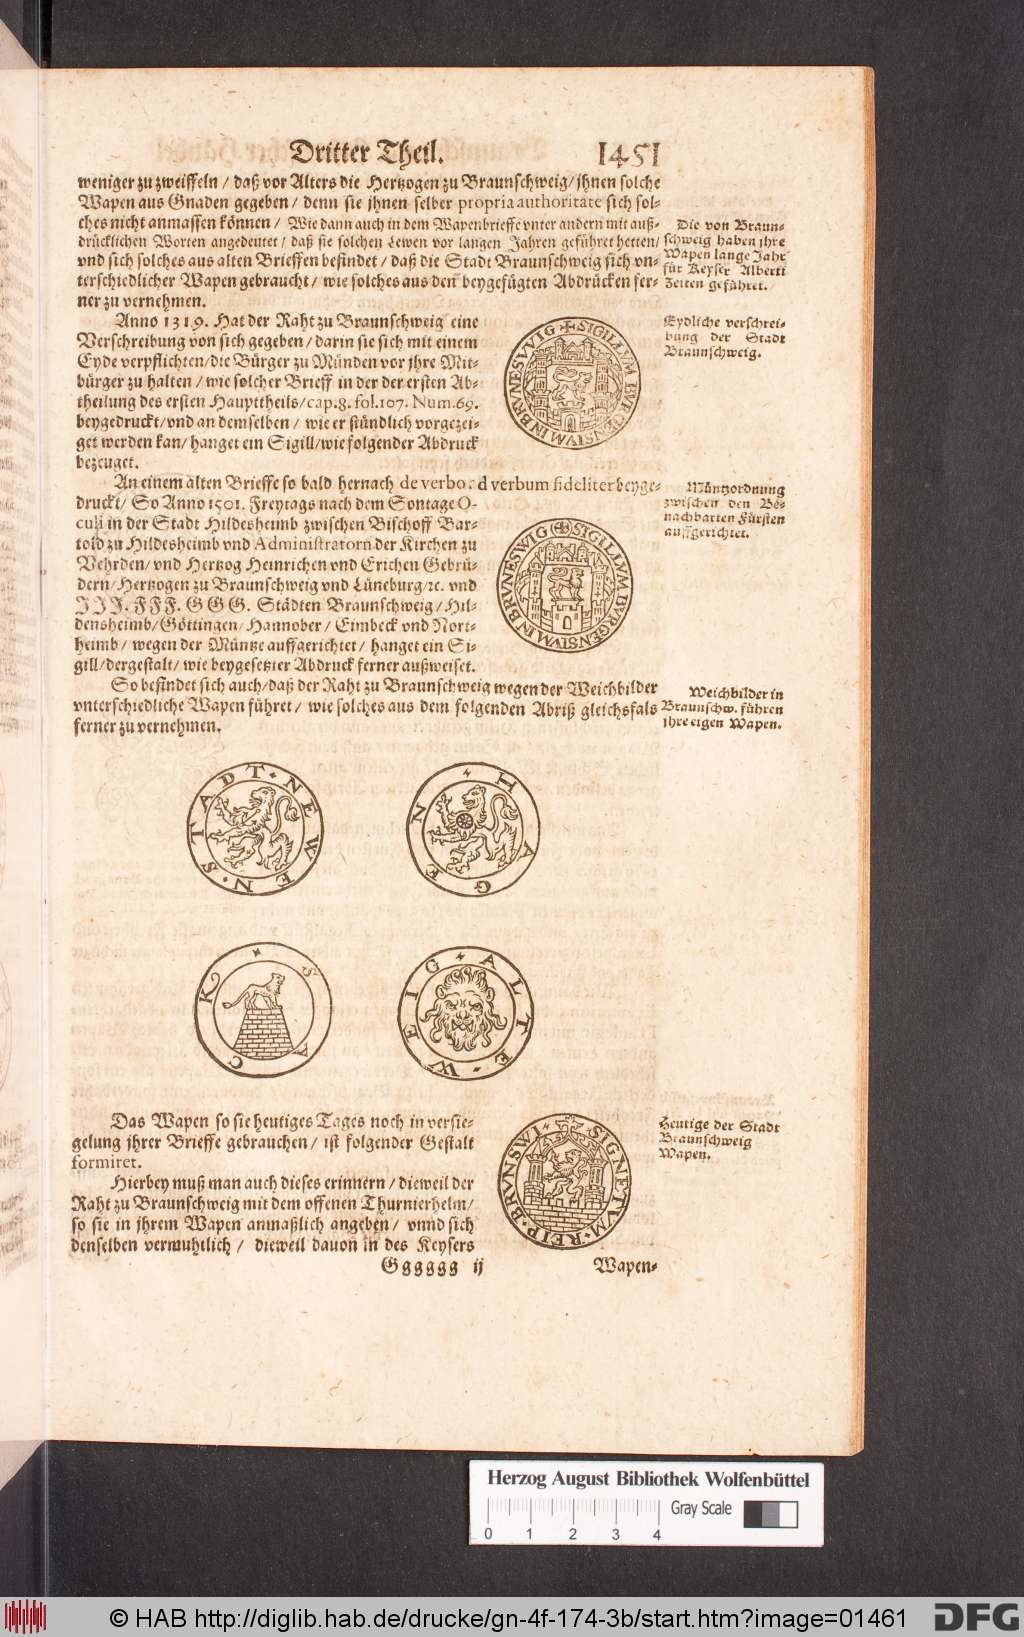 Dritter Theil. 1451
weniger zu zweiffeln / daß vor Alters die Hertzogen zu Braunschweig / jhnen solche
Wapen aus Gnaden gegeben / denn sie jhnen selber propria authoritate sich sol-
ches nicht anmassen können / Wie dann auch in dem Wapenbrieffe vnter andern mit auß-
drücklichen Worten angedeutet / daß sie solchen Lewen vor langen Jahren geführet hetten /
vnd sich solches aus alten Brieffen befindet / daß die Stadt Braunschweig sich vn-
terschiedlicher Wapen gebraucht / wie solches aus den beygefügten Abdrücken fer-
ner zu vernehmen.
Die von Braun-
schweig haben jhre
Wapen lange Jahr
für Keyser Alberti
Zeiten geführet.
Anno 1319. Hat der Raht zu Braunschweig eine
Verschreibung von sich gegeben / darin sie sich mit einem
Eyde verpflichten / die Bürger zu Münden vor jhre Mit-
bürger zu halten / wie solcher Brieff in der der ersten Ab-
theilung des ersten Haupttheils / cap. 8. fol. 107. Num. 69.
beygedruckt / vnd an demselben / wie er stündlich vorgezei-
get werden kan / hanget ein Sigill / wie folgender Abdruck
bezeuget.
SIGILLVM BVRGENSIVM IN BRVNESVVIG
Eydliche verschrei-
bung der Stadt
Braunschweig.
An einem alten Brieffe so bald hernach de verbo ad verbum fideliter beyge-
druckt / So Anno 1501. Freytags nach dem Sontage O-
culi in der Stadt Hildesheimb zwischen Bischoff Bar-
told zu Hildesheimb vnd Administratorn der Kirchen zu
Vehrden / vnd Hertzog Heinrichen vnd Erichen Gebrü-
dern / Hertzogen zu Braunschweig vnd Lüneburg / ꝛc. vnd
JJJ. FFF. GGG. Städten Braunschweig / Hil-
densheimb / Göttingen / Hannober / Eimbeck vnd Nort-
heimb / wegen der Müntze auffgerichtet / hanget ein Si-
gill / dergestalt / wie beygesetzter Abdruck ferner außweiset.
SIGILLVM BVRGENSIVM IN BRVNESWIG
Müntzordnung
zwischen den Be-
nachbarten Fürsten
auffgerichtet.
So befindet sich auch / daß der Raht zu Braunschweig wegen der Weichbilder
vnterschiedliche Wapen führet / wie solches aus dem folgenden Abriß gleichsfals
ferner zu vernehmen.
Weichbilder in
Braunschw. führen
jhre eigen Wapen.
NEWEN · STADT
HAGEN
SACK
ALTE · WEIG
Das Wapen so sie heutiges Tages noch in versie-
gelung jhrer Brieffe gebrauchen / ist folgender Gestalt
formiret.
Hierbey muß man auch dieses erinnern / dieweil der
Raht zu Braunschweig mit dem offenen Thurnierhelm /
so sie in jhrem Wapen anmaßlich angeben / vnnd sich
denselben vermuhtlich / dieweil davon in des Keysers
SIGNETVM · REIP · BRVNSWI
Heutige der Stadt
Braunschweig
Wapen.
Gggggg ij Wapen-
Herzog August Bibliothek Wolfenbüttel
Gray Scale
0 1 2 3 4
© HAB http://diglib.hab.de/drucke/gn-4f-174-3b/start.htm?image=01461 DFG